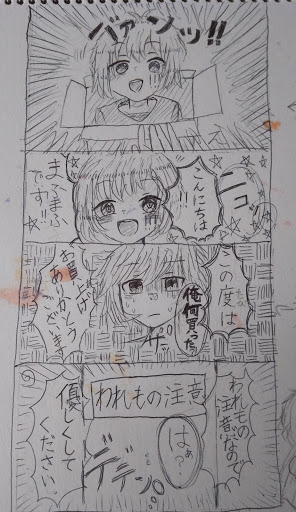 バァンッ!!
ニコッ
こんにちは
!!
まふ手ふ
です!!
この度は
俺何買った
お買い上げ
ありがとう
ございます
ザッ
われもの
注意なので
われもの注意
はぁ?
デデン。
優しくして
ください。